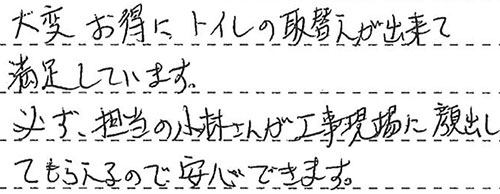 大変お得にトイレの取替えが出来て
満足しています。
必ず、担当の小林さんが工事現場に顔出し
てもらえるので安心できます。